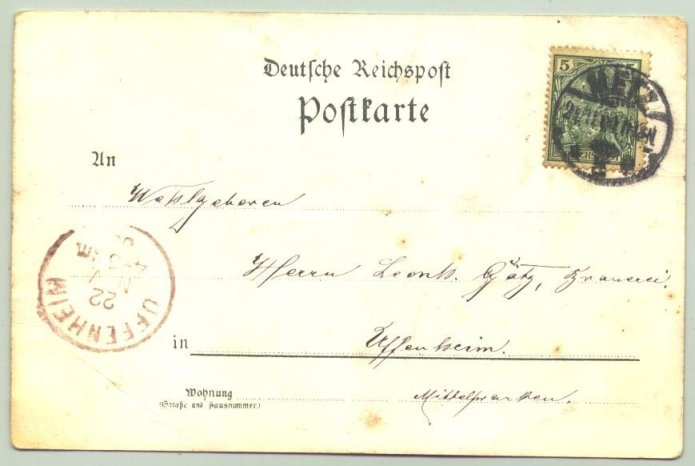 Deutsche Reichspost
Postkarte
5
METZ
An
Wohlgeboren
Herrn Leonh. Götz, Brauerei.
UFFENHEIM
22
in
Uffenheim.
Wohnung
(Straße und Hausnummer)
Mittelfranken.